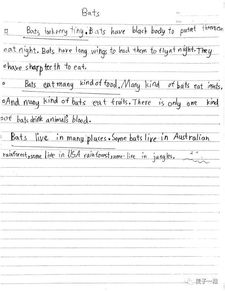 Bats
Bats have black body to
at night. Bats have long wings to them to fly at night. They
have sharp teeth to eat.
Bats eat many kind of food. Many kind of bats eat
And many kind of bats eat fruits. There is only one kind
of bats drink animals blood.
Bats live in many places. Some bats live in Australian
rainforest, some live in USA rainforest, some live in jungles.